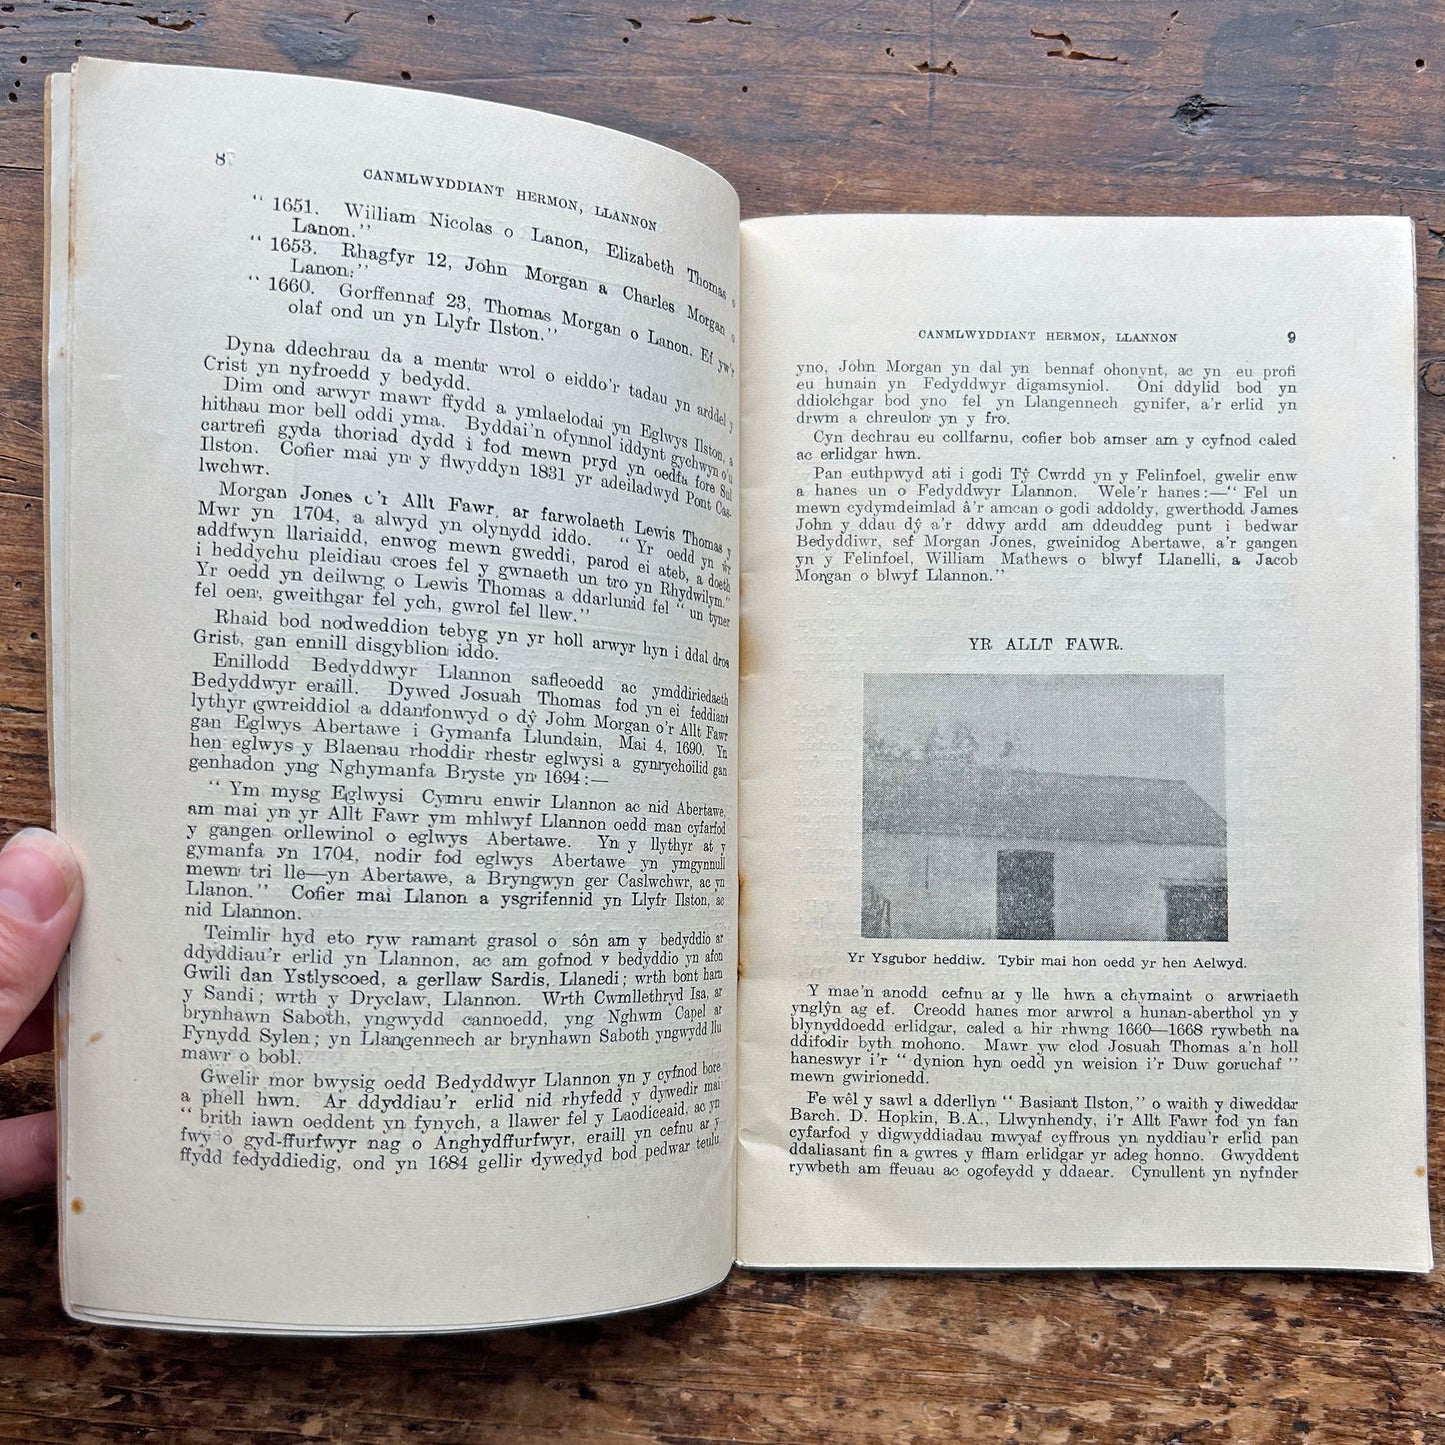 8
CANMLWYDDIANT HERMON, LLANNON
“ 1651. William Nicolas o Lanon, Elizabeth Thomas o
Lanon.”
“ 1653. Rhagfyr 12, John Morgan a Charles Morgan o
Lanon.”
“ 1660. Gorffennaf 23, Thomas Morgan o Lanon. Ef yw'r
olaf ond un yn Llyfr Ilston.”
Dyna ddechrau da a mentr wrol o eiddo'r tadau yn arddel y
Crist yn nyfroedd y bedydd.
Dim ond arwyr mawr ffydd a ymlaelodai yn Eglwys Ilston, a
hithau mor bell oddi yma. Byddai'n ofynnol iddynt gychwyn o'u
cartrefi gyda thoriad dydd i fod mewn pryd yn oedfa fore Sul
Ilston. Cofier mai yn y flwyddyn 1831 yr adeiladwyd Pont Cas-
lwchwr.
Morgan Jones o'r Allt Fawr, ar farwolaeth Lewis Thomas y
Mwr yn 1704, a alwyd yn olynydd iddo. “ Yr oedd yn ŵr
addfwyn llariaidd, enwog mewn gweddi, parod ei ateb, a doeth
i heddychu pleidiau croes fel y gwnaeth un tro yn Rhydwilym.”
Yr oedd yn deilwng o Lewis Thomas a ddarlunid fel “ un tyner
fel oen, gweithgar fel ych, gwrol fel llew.”
Rhaid bod nodweddion tebyg yn yr holl arwyr hyn i ddal dros
Grist, gan ennill disgyblion iddo.
Enillodd Bedyddwyr Llannon safleoedd ac ymddiriedaeth
Bedyddwyr eraill. Dywed Josuah Thomas fod yn ei feddiant
lythyr gwreiddiol a ddanfonwyd o dŷ John Morgan o'r Allt Fawr
gan Eglwys Abertawe i Gymanfa Llundain, Mai 4, 1690. Yn
hen eglwys y Blaenau rhoddir rhestr eglwysi a gynrychoilid gan
genhadon yng Nghymanfa Bryste yn 1694 :—
“ Ym mysg Eglwysi Cymru enwir Llannon ac nid Abertawe,
am mai yn yr Allt Fawr ym mhlwyf Llannon oedd man cyfarfod
y gangen orllewinol o eglwys Abertawe. Yn y llythyr at y
gymanfa yn 1704, nodir fod eglwys Abertawe yn ymgynnull
mewn tri lle—yn Abertawe, a Bryngwyn ger Caslwchwr, ac yn
Llanon.” Cofier mai Llanon a ysgrifennid yn Llyfr Ilston, ac
nid Llannon.
Teimlir hyd eto ryw ramant grasol o sôn am y bedyddio ar
ddyddiau'r erlid yn Llannon, ac am gofnod y bedyddio yn afon
Gwili dan Ystlyscoed, a gerllaw Sardis, Llanedi ; wrth bont ham
y Sandi ; wrth y Dryclaw, Llannon. Wrth Cwmllethryd Isa, ar
brynhawn Saboth, yngwydd cannoedd, yng Nghwm Capel ar
Fynydd Sylen ; yn Llangennech ar brynhawn Saboth yngwydd llu
mawr o bobl.
Gwelir mor bwysig oedd Bedyddwyr Llannon yn y cyfnod bore
a phell hwn. Ar ddyddiau'r erlid nid rhyfedd y dywedir mai
“ brith iawn oeddent yn fynych, a llawer fel y Laodiceaid, ac yn
fwy o gyd-ffurfwyr nag o Anghydffurfwyr, eraill yn cefnu ar y
ffydd fedyddiedig, ond yn 1684 gellir dywedyd bod pedwar teulu
CANMLWYDDIANT HERMON, LLANNON 9
yno, John Morgan yn dal yn bennaf ohonynt, ac yn eu profi
eu hunain yn Fedyddwyr digamsyniol. Oni ddylid bod yn
ddiolchgar bod yno fel yn Llangennech gynifer, a'r erlid yn
drwm a chreulon yn y fro.
Cyn dechrau eu collfarnu, cofier bob amser am y cyfnod caled
ac erlidgar hwn.
Pan euthpwyd ati i godi Tŷ Cwrdd yn y Felinfoel, gwelir enw
a hanes un o Fedyddwyr Llannon. Wele'r hanes :—“ Fel un
mewn cydymdeimlad â'r amcan o godi addoldy, gwerthodd James
John y ddau dŷ a'r ddwy ardd am ddeuddeg punt i bedwar
Bedyddiwr, sef Morgan Jones, gweinidog Abertawe, a'r gangen
yn y Felinfoel, William Mathews o blwyf Llanelli, a Jacob
Morgan o blwyf Llannon.”
YR ALLT FAWR.
Yr Ysgubor heddiw. Tybir mai hon oedd yr hen Aelwyd.
Y mae'n anodd cefnu ar y lle hwn a chymaint o arwriaeth
ynglŷn ag ef. Creodd hanes mor arwrol a hunan-aberthol yn y
blynyddoedd erlidgar, caled a hir rhwng 1660—1668 rywbeth na
ddifodir byth mohono. Mawr yw clod Josuah Thomas a'n holl
haneswyr i'r “ dynion hyn oedd yn weision i'r Duw goruchaf ”
mewn gwirionedd.
Fe wêl y sawl a dderllyn “ Basiant Ilston,” o waith y diweddar
Barch. D. Hopkin, B.A., Llwynhendy, i'r Allt Fawr fod yn fan
cyfarfod y digwyddiadau mwyaf cyffrous yn nyddiau'r erlid pan
ddaliasant fin a gwres y fflam erlidgar yr adeg honno. Gwyddent
rywbeth am ffeuau ac ogofeydd y ddaear. Cynullent yn nyfnder